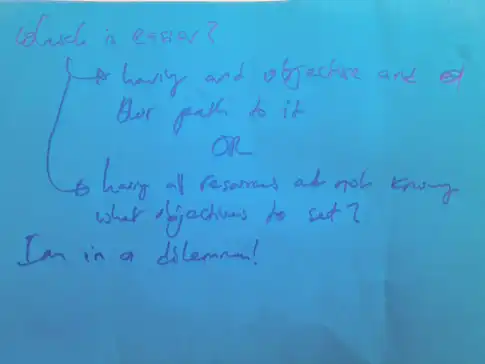 Which is easier?
having and objective and
path to it
OR
having all resources not knowing
what objectives to set?
I am in a dilemma!